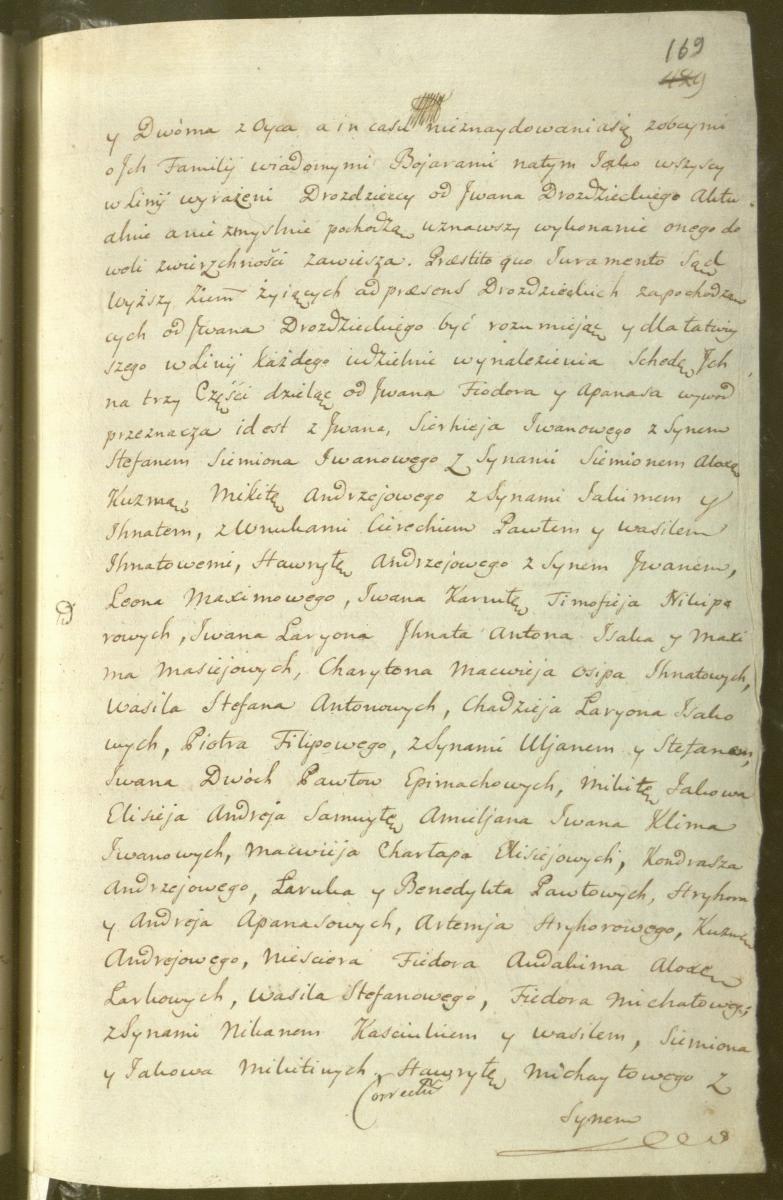 169
429
y Dwóma z Oyca a in casu nieznaydowaniasię zobcymi
o Jch Familij wiadomymi Bojarami natym Jako wszyscy
w Linij wyrażeni Drozdzieccy od Jwana Drozdzieckiego Aktu
alnie a nie zmyslnie pochodzą uznawszy wykonanie onego do
woli zwierzchności zawiesza. Præstito quo Juramento Sąd
Wyższy Ziem̄ żyiących ad præsens Drozdzieckich zapochodzą
cych od Jwana Drozdzieckiego być rozumiejąc y dla łatwiy
szego w Linij każdego udzielnie wynalezienia Schedę Jch
na trzy Części dzieląc od Jwana Fiodora y Apanasa wywod
przeznacza id est z Jwana, Sierhieja Iwanowego z Synem
Stefanem Siemiona Iwanowego z Synami Siemionem Aloxą
Kuzmą, Mikitę Andrzejowego z Synami Jakimem y
Ihnatem, z Wnukami Cierechiem Pawłem y Wasilem
Ihnatowemi, Hawryłę Andrzejowego z Synem Jwanem,
Leona Maximowego, Iwana Karnitę Timofieja Nikipa
rowych, Iwana Laryona Jhnata Antona Isaka y Maxi
ma Masiejowych, Charytona Macwieja Osipa Ihnatowych,
Wasila Stefana Antonowych, Chadzieja Laryona Isako
wych, Piotra Filipowego, z Synami Uljanem y Stefanem,
Iwana Dwóch Pawłow Epimachowych, Mikitę Jakowa
Elisieja Andreja Samuyłę Amieljana Iwana Klima
Iwanowych, Macwieja Charłapa Elisiejowych, Kondrasza
Andrzejowego, Laruka y Benedykta Pawłowych, Hryhora
y Andreja Apanasowych, Artemja Hryhorowego, Kuzmę
Andrejowego, Niesciora Fiedora Audakima Aloxę
Larkowych, Wasila Stefanowego, Fiedora Michałowego
z Synami Nikanem Kasciukiem y Wasilem, Siemiona
y Jakowa Mikitinych, Hawryłę Michayłowego z
Correctū
Synem